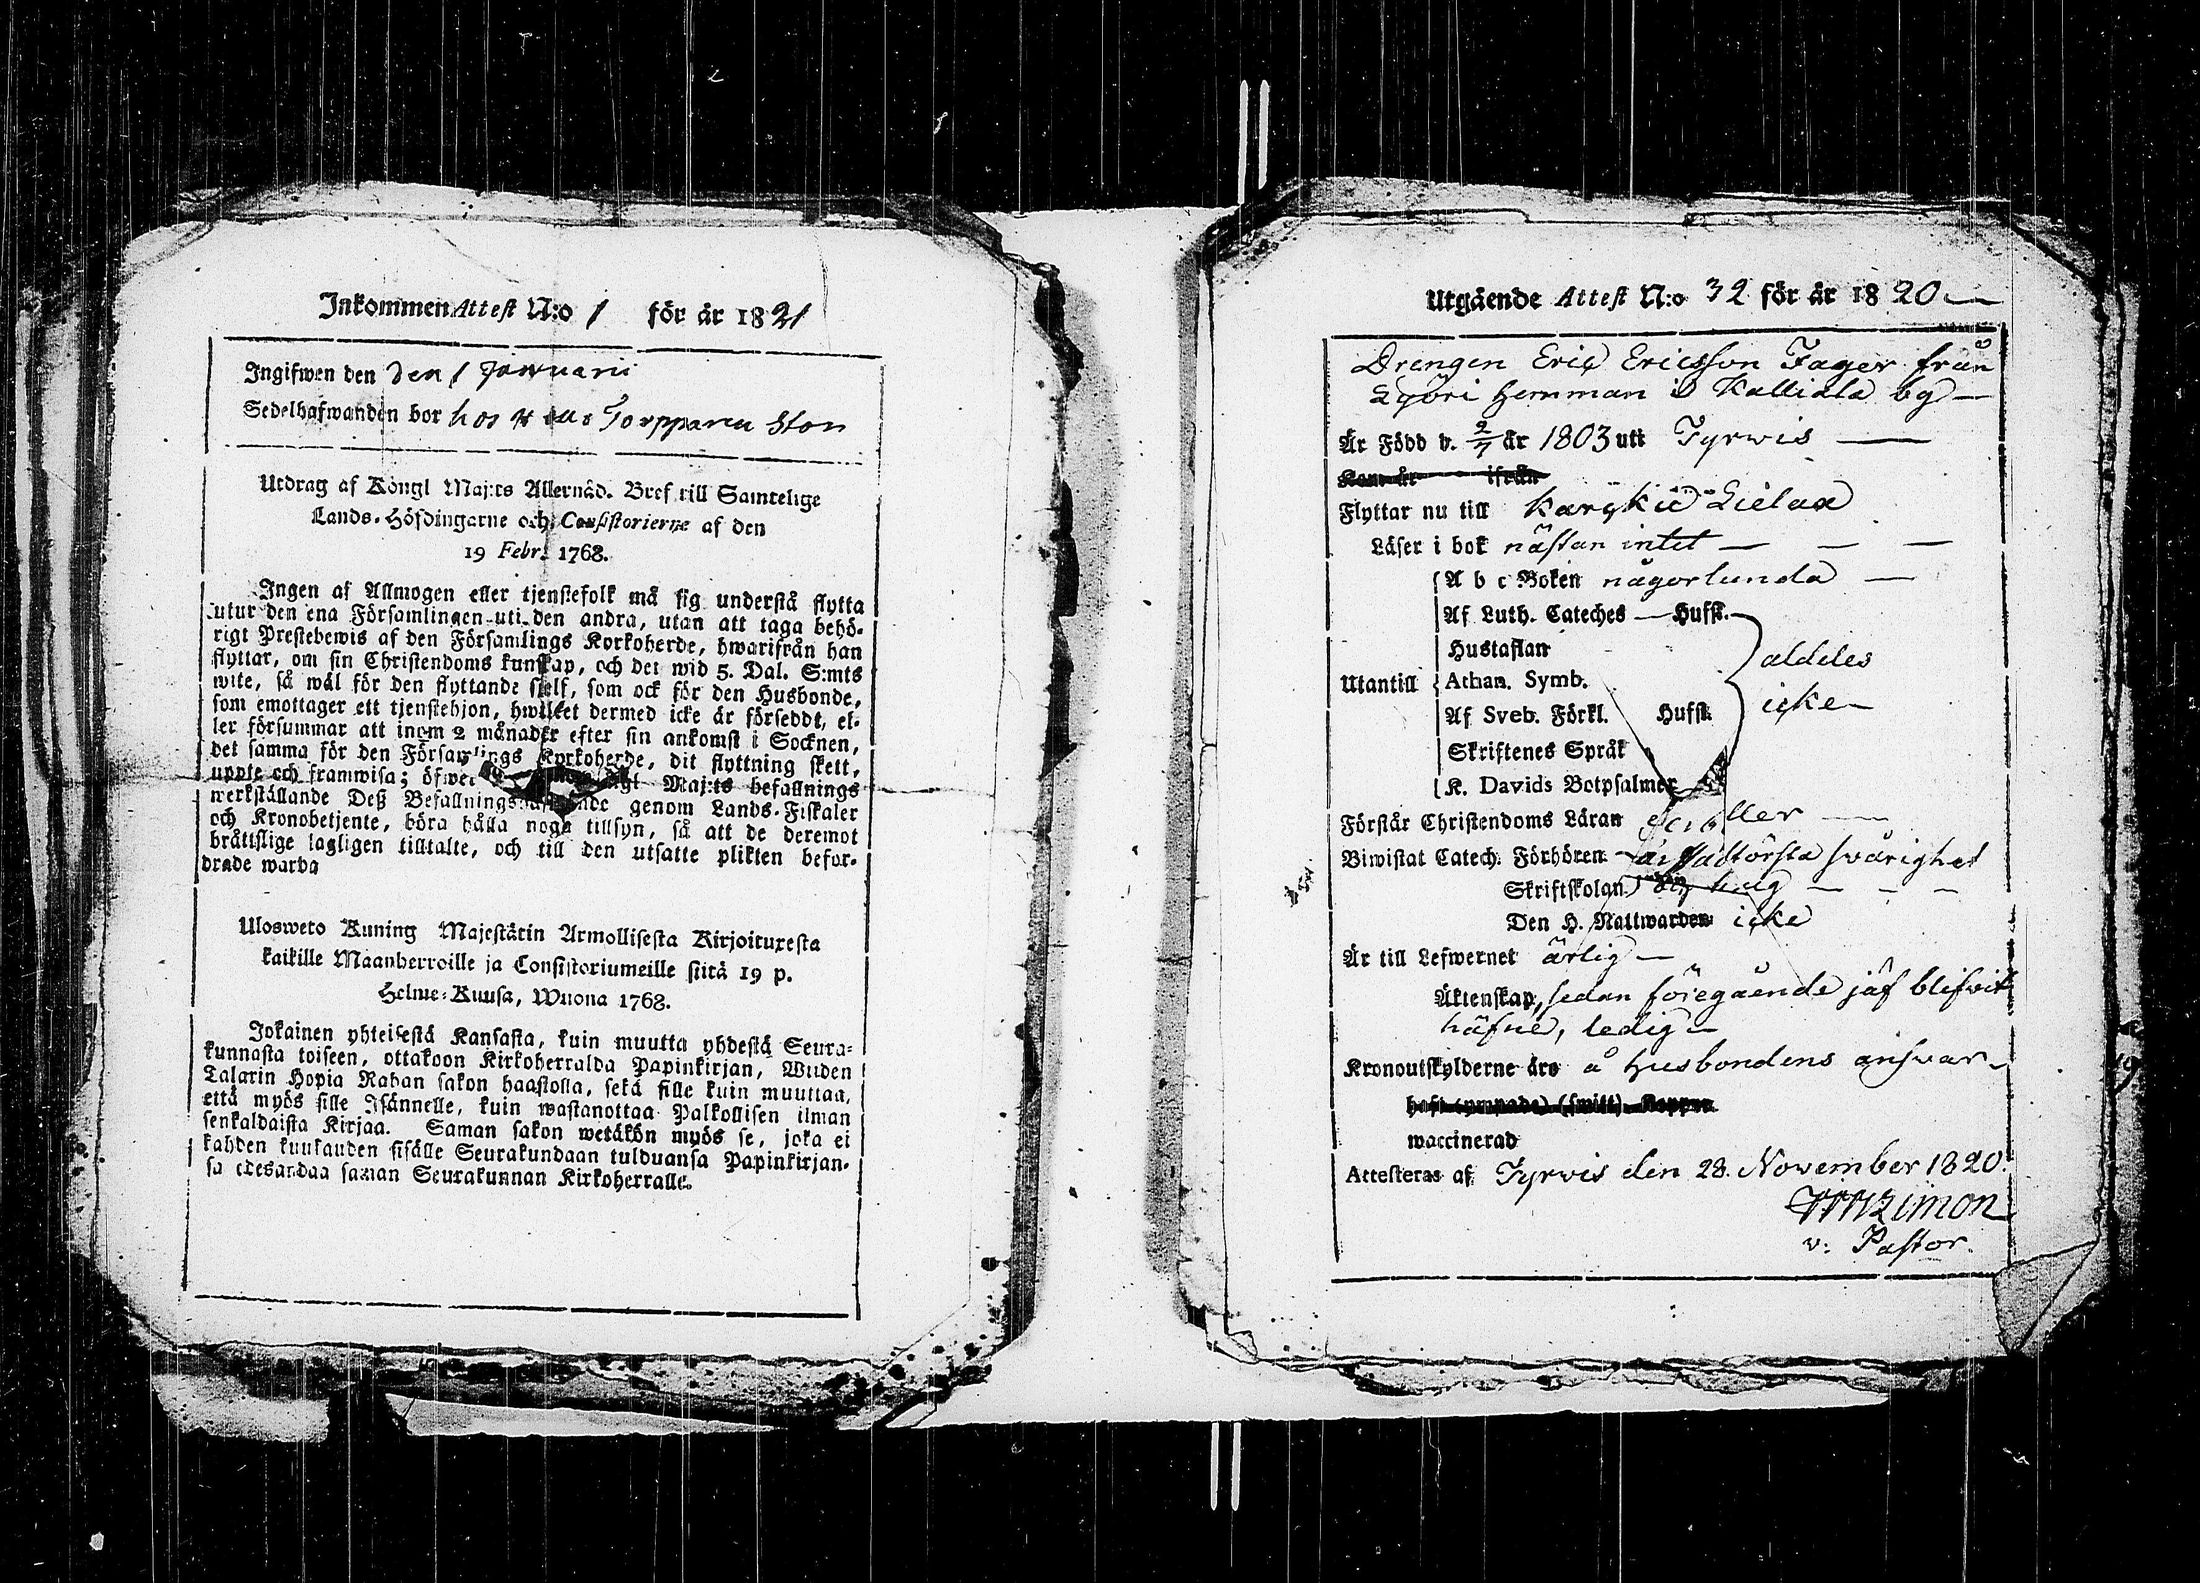 Inkommen Attest N:o 1 för år 1821
Ingifwen den den 1 Januarii
Sedelhafwanden bor hos Torpparen Ston
Utdrag af Köngl Maj:ts Allernåd. Bref till Samtelige
Lands-Höfdingarne och Consistorierne af den
19 Febr. 1768.
Ingen af Allmogen eller tjenstefolk må sig understå flytta
utur den ena Församlingen uti den andra, utan att taga behö-
rigt Prestebewis af den Församlings Kyrkoherde, hwarifrån han
flyttar, om sin Christendoms kunskap, och det wid 5. Dal. S:mts
wite, så wäl för den flyttande sjelf, som ock för den Husbonde,
som emottager ett tjenstehjon, hwilket dermed icke är försedt, el-
ler försummar att inom 2 månader efter sin ankomst i Socknen,
det samma för den Församlings Kyrkoherde, dit flyttning skett,
uppte och framwisa; öfwer Maj:ts befallnings
werkställande Deß Befallningshafwande genom Lands-Fiskaler
och Kronobetjente, böra hålla noga tillsyn, så att de deremot
bråttslige lagligen tilltalte, och till den utsatte plikten befor-
drade warda
Ulosweto Kuning Majestätin Armollisesta Kirjoituxesta
kaikille Maanherroille ja Consistoriumeille siitä 19 p.
Helme-Kuusa, Wuona 1768.
Jokainen yhteisestä Kansasta, kuin muutta yhdestä Seura-
kunnasta toiseen, ottakoon Kirkoherralda Papinkirjan, Wiiden
Talarin Hopia Rahan sakon haastolla, sekä sille kuin muuttaa,
että myös sille Isännelle, kuin wastanottaa Palkollisen ilman
senkaldaista Kirjaa. Saman sakon wetäkön myös se, joka ei
kahden kuukauden sisälle Seurakundaan tulduansa Papinkirjan-
sa edesandaa saman Seurakunnan Kirkoherralle.
Utgående Attest N:o 32 för år 1820
Drengen Eric Ericsson Fager från
hemman i Kalliala by
Är Född d. 2/7 år 1803 uti Tyrwis
Kom år ifrån
Flyttar nu till Karckü Lielax
Läser i bok nästan intet
A b c Boken någorlunda
Af Luth. Cateches — Hufst.
Hustaflan
aldeles
Utantill Athan. Symb.
Af Sveb. Förkl. Hufst. icke
Skriftenes Språk
K. Davids Botpsalmer
Förstår Christendoms Läran
Biwistat Catech. Förhören swårighet
Skriftskolan
Den H. Nattwarden icke
Är till Lefwernet ärlig
Äktenskap, sedan föregående jäf blifwit
häfne, ledig
Kronoutskylderne äro å Husbondens answar
waccinerad
Attesteras af Tyrwis den 28. November 1820.
v: Pastor.